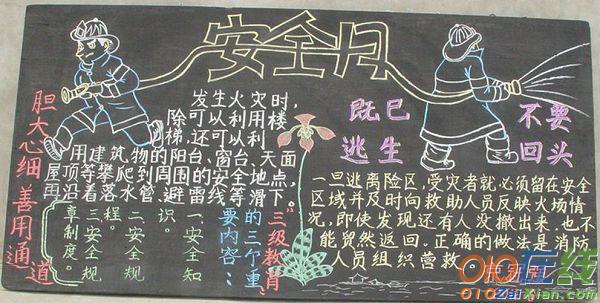 安全月
胆大心细 善用通道
发生火灾时,
除可以利用楼
梯,还可以利
用建筑物的阳台、窗台、天面
屋顶等攀爬到周围的安全地点,
再沿着落水管、避雷线等地滑下。
既已逃生
不要回头
一旦逃离险区,受灾者就必须留在安全
区域并及时向救助人员反映火场情
况,即使发现还有人没撤出来,也不
能贸然返回。正确的做法是消防
人员组织营救。
"三级教育"
的三个重
要内容:
一、安全知
识。
二安全规
程。
三安全规
章制度。
010在线
010zaixian.com